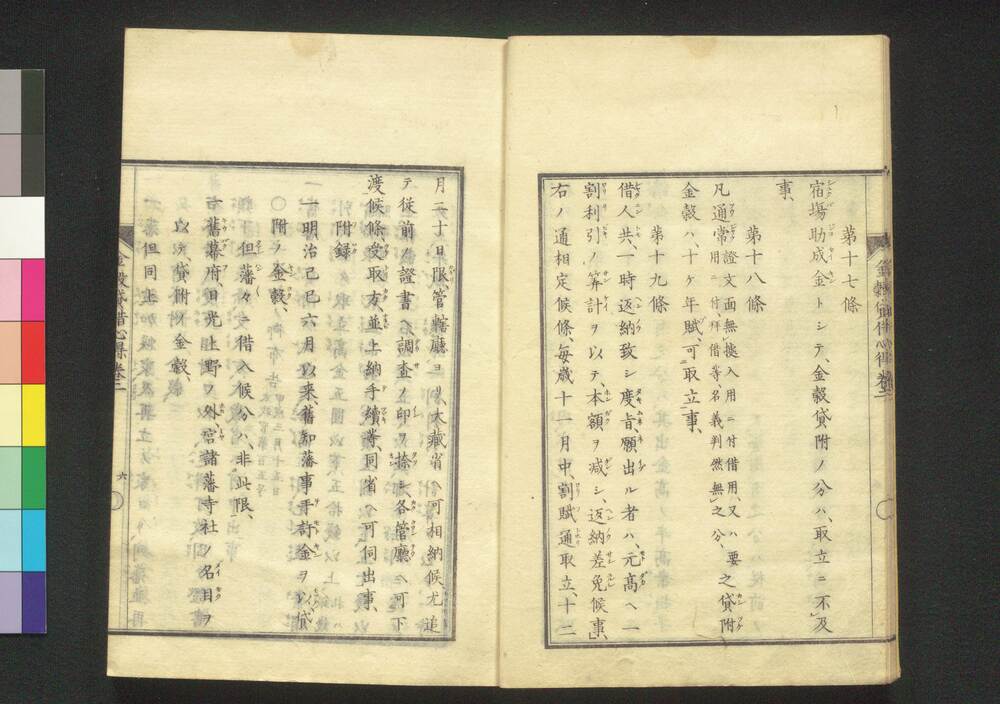 第十七條
宿塲助成金トシテ、金穀貸附ノ分ハ、取立ニ不及
事、
第十八條
凡通常證文面無據入用ニ付借用、又ハ要用ニ付、拜借等、名義判然無之分、之貸附
金穀ハ、十ケ年賦、可取立事、
第十九條
借人共、一時返納致シ度旨、願出ル者ハ、元高ヘ一
割利引ノ算計ヲ以テ、本額ヲ减シ、返納差免候事、
右ノ通相定候條、毎歳十一月中割賦通取立、十二
月二十日限、管轄廳ヨリ大藏省ヘ可相納候、尤追
テ從前ノ證書ニ調査ノ印ヲ捺シ、各管廳ヘ可下
渡候條、受取方、並上納手續等、同省ヘ可伺出事、
附録
一明治己巳六月以来舊知藩事平均金ヲ以、貸
附ノ金穀、
但藩々ニ借入候分ハ、非此限、
一舊幕府、日光上野ノ外、宮諸藩寺社ノ名目ヲ
以、貸附ノ金穀、
但同上
金穀貸借心得巻二
六